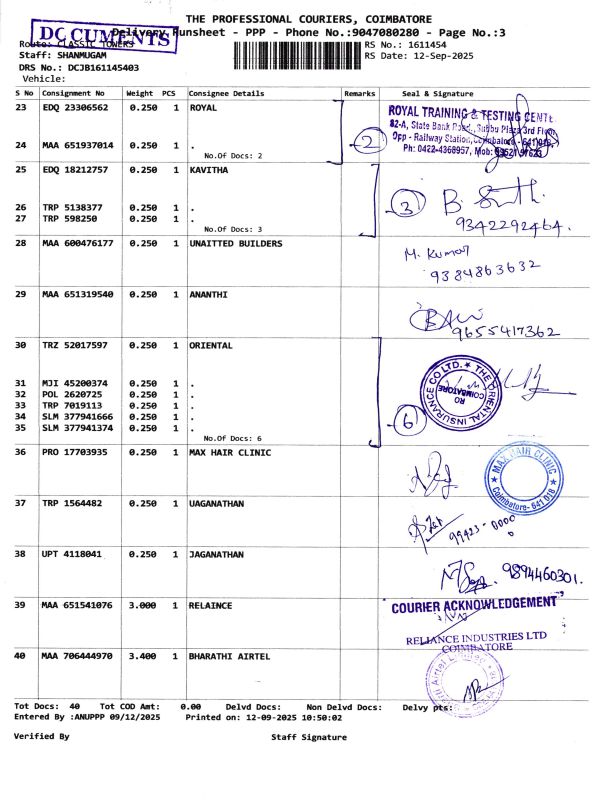 THE PROFESSIONAL COURIERS, COIMBATORE
Delivery Runsheet - PPP - Phone No.:9047080280 - Page No.:3
DOCUMENTS
Route: CLASSIC TOWERS
RS No.: 1611454
Staff: SHANMUGAM
RS Date: 12-Sep-2025
DRS No.: DCJB161145403
Vehicle:
S No Consignment No Weight PCS Consignee Details Remarks Seal & Signature
23 EDQ 23306562 0.250 1 ROYAL
ROYAL TRAINING & TESTING CENT
82-A, State Bank Road, Subbu Plaza 3rd Floor
Opp - Railway Station, Coimbatore - 641 018
Ph: 0422-4368957, Mob:
2
24 MAA 651937014 0.250 1 .
No.Of Docs: 2
25 EDQ 18212757 0.250 1 KAVITHA
3
9342292464.
26 TRP 5138377 0.250 1 .
27 TRP 598250 0.250 1 .
No.Of Docs: 3
28 MAA 600476177 0.250 1 UNAITTED BUILDERS
M. Kumar
9384863632
29 MAA 651319540 0.250 1 ANANTHI
9655417362
30 TRZ 52017597 0.250 1 ORIENTAL
THE ORIENTAL INSURANCE CO LTD.
RO
COIMBATORE
6
31 MJI 45200374 0.250 1 .
32 POL 2620725 0.250 1 .
33 TRP 7019113 0.250 1 .
34 SLM 377941666 0.250 1 .
35 SLM 377941374 0.250 1 .
No.Of Docs: 6
36 PRO 17703935 0.250 1 MAX HAIR CLINIC
MAX HAIR CLINIC
Coimbatore- 641 018
37 TRP 1564482 0.250 1 UAGANATHAN
99423-0000
38 UPT 4118041 0.250 1 JAGANATHAN
9894460301.
39 MAA 651541076 3.000 1 RELAINCE
COURIER ACKNOWLEDGEMENT
RELIANCE INDUSTRIES LTD
COIMBATORE
40 MAA 706444970 3.400 1 BHARATHI AIRTEL
Tot Docs: 40 Tot COD Amt: 0.00 Delvd Docs: Non Delvd Docs: Delvy pts:
Entered By :ANUPPP 09/12/2025 Printed on: 12-09-2025 10:50:02
Verified By Staff Signature